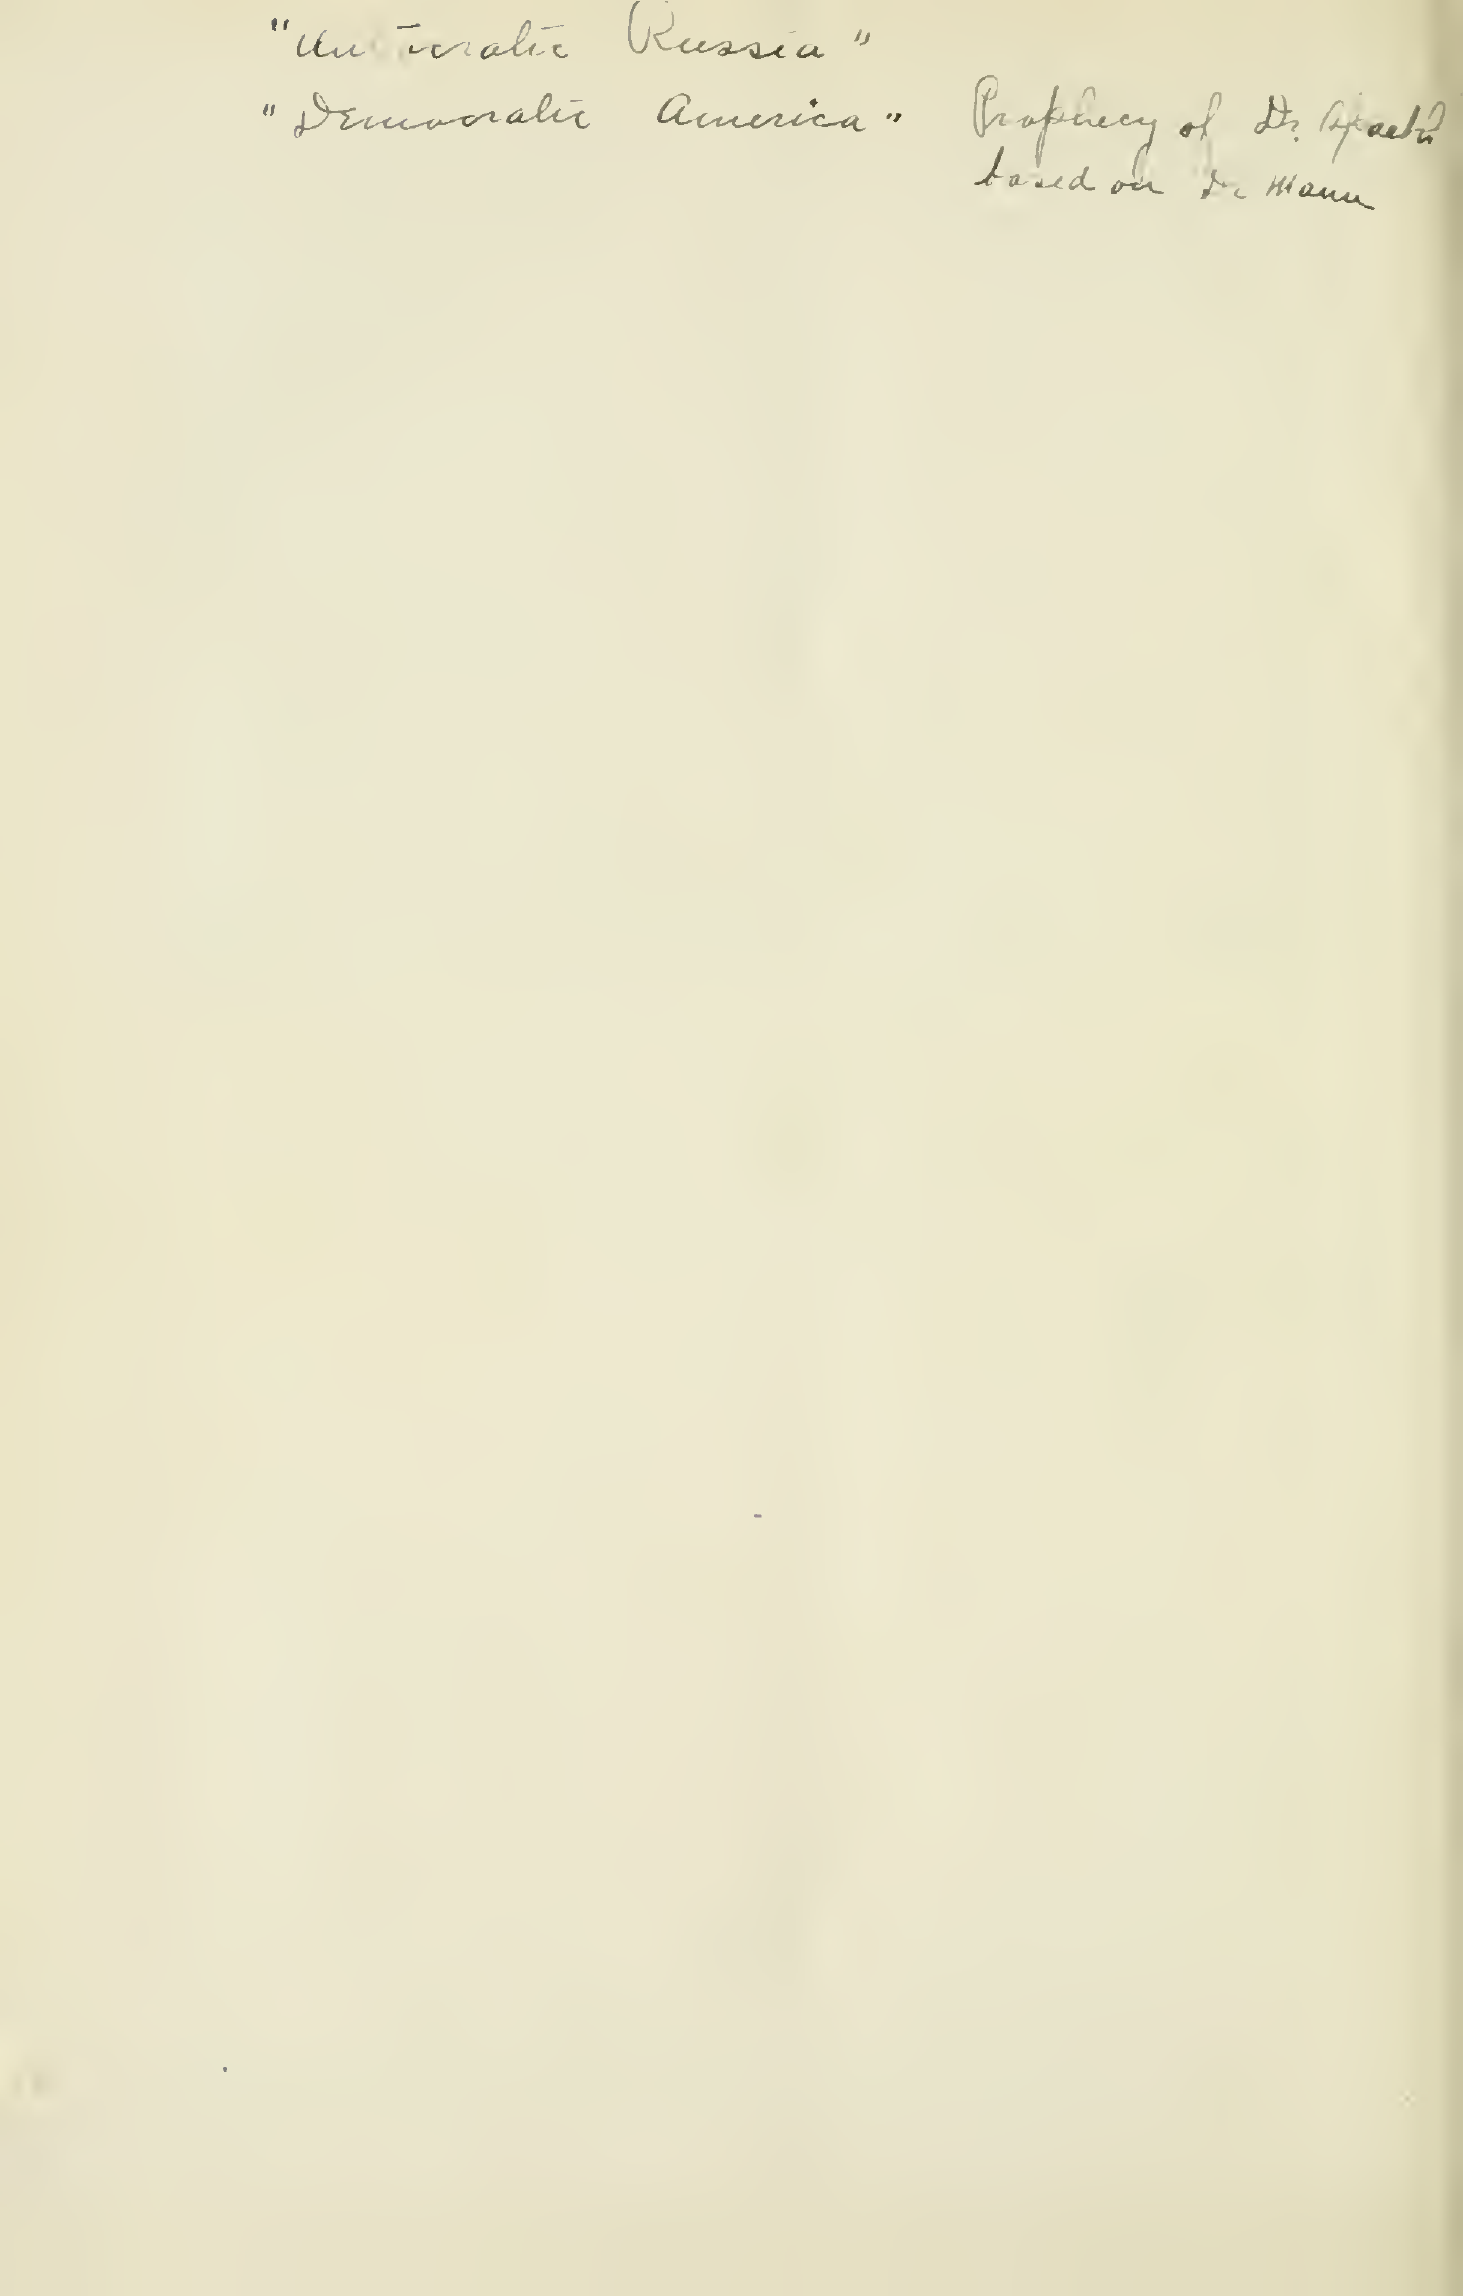 "Autocratic Russia"
"Democratic America" Prophecy of Dr.
based on Dr Mann